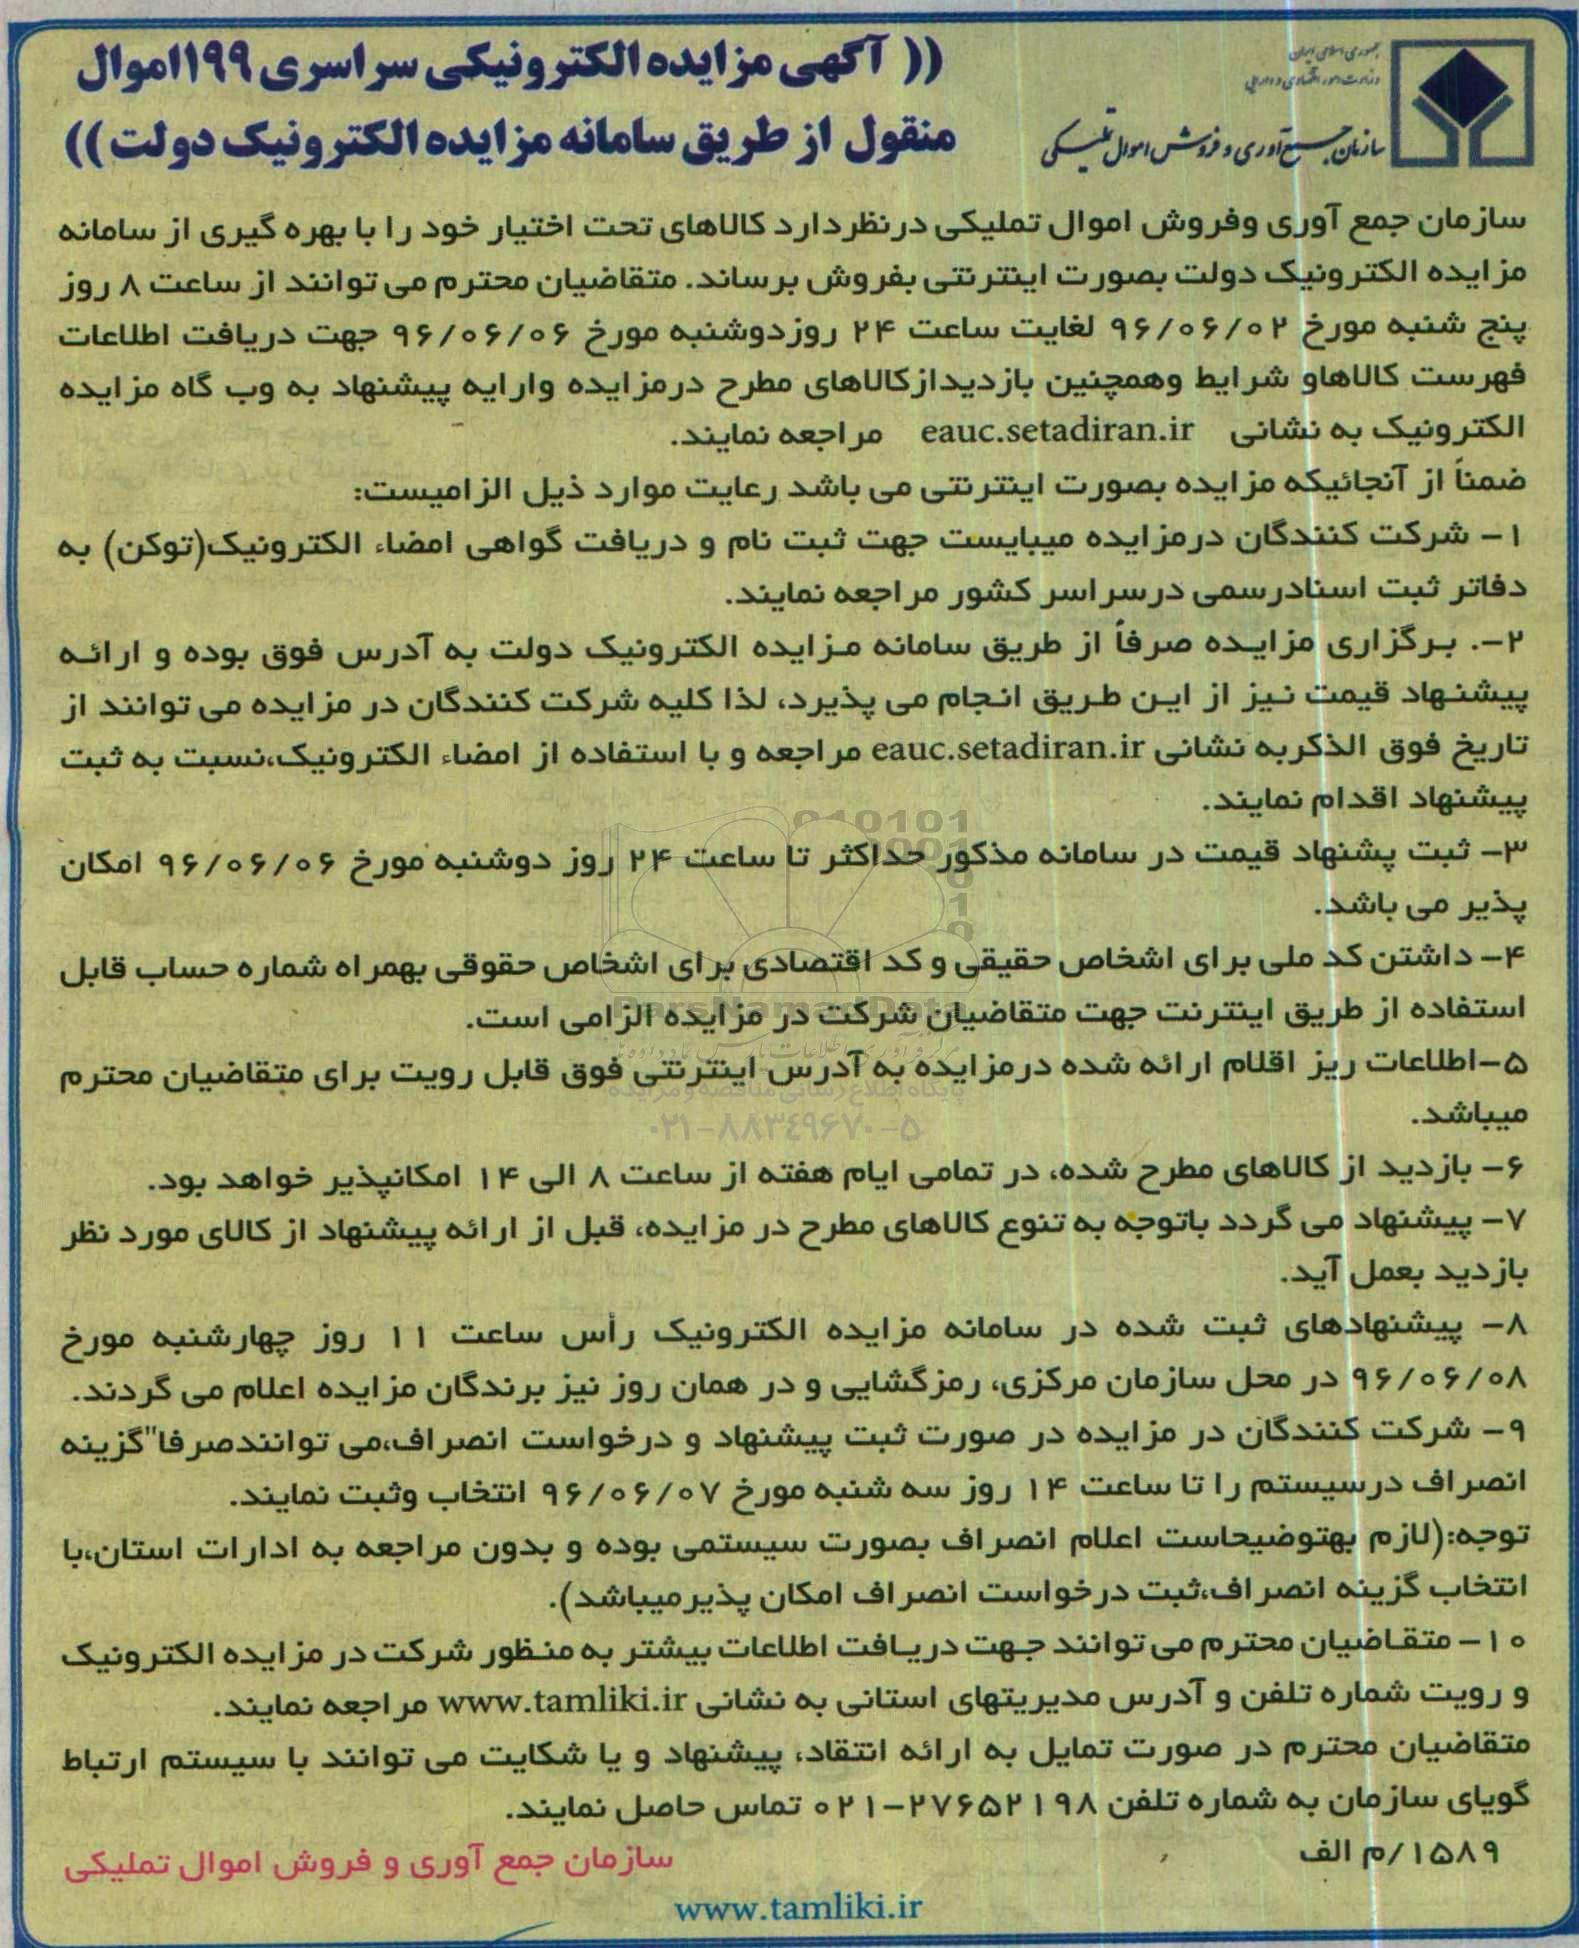 جمهوری اسلامی ایران
وزارت امور اقتصادی و دارایی
سازمان جمع آوری و فروش اموال تملیکی
(( آگهی مزایده الکترونیکی سراسری ۱۹۹اموال
منقول از طریق سامانه مزایده الکترونیک دولت))
سازمان جمع آوری وفروش اموال تملیکی درنظردارد کالاهای تحت اختیار خود را با بهره گیری از سامانه
مزایده الکترونیک دولت بصورت اینترنتی بفروش برساند. متقاضیان محترم می توانند از ساعت ۸ روز
پنج شنبه مورخ ۹۶/۰۶/۰۲ لغایت ساعت ۲۴ روزدوشنبه مورخ ۹۶/۰۶/۰۶ جهت دریافت اطلاعات
فهرست کالاهاو شرایط وهمچنین بازدیدازکالاهای مطرح درمزایده وارایه پیشنهاد به وب گاه مزایده
الکترونیک به نشانی eauc.setadiran.ir مراجعه نمایند.
ضمناً از آنجائیکه مزایده بصورت اینترنتی می باشد رعایت موارد ذیل الزامیست:
۱- شرکت کنندگان درمزایده میبایست جهت ثبت نام و دریافت گواهی امضاء الکترونیک(توکن) به
دفاتر ثبت اسنادرسمی درسراسر کشور مراجعه نمایند.
۲-. برگزاری مزایده صرفاً از طریق سامانه مزایده الکترونیک دولت به آدرس فوق بوده و ارائه
پیشنهاد قیمت نیز از این طریق انجام می پذیرد، لذا کلیه شرکت کنندگان در مزایده می توانند از
تاریخ فوق الذکربه نشانی eauc.setadiran.ir مراجعه و با استفاده از امضاء الکترونیک،نسبت به ثبت
پیشنهاد اقدام نمایند.
۳- ثبت پشنهاد قیمت در سامانه مذکور حداکثر تا ساعت ۲۴ روز دوشنبه مورخ ۹۶/۰۶/۰۶ امکان
پذیر می باشد.
۴- داشتن کد ملی برای اشخاص حقیقی و کد اقتصادی برای اشخاص حقوقی بهمراه شماره حساب قابل
استفاده از طریق اینترنت جهت متقاضیان شرکت در مزایده الزامی است.
ParsNamadData
۵-اطلاعات ریز اقلام ارائه شده درمزایده به آدرس اینترنتی فوق قابل رویت برای متقاضیان محترم
پایگاه اطلاع رسانی مناقصه و مزایده
میباشد.
۰۲۱-۸۸۳۴۹۶۷۰-۵
۶- بازدید از کالاهای مطرح شده، در تمامی ایام هفته از ساعت ۸ الی ۱۴ امکانپذیر خواهد بود.
۷- پیشنهاد می گردد باتوجه به تنوع کالاهای مطرح در مزایده، قبل از ارائه پیشنهاد از کالای مورد نظر
بازدید بعمل آید.
۸- پیشنهادهای ثبت شده در سامانه مزایده الکترونیک رأس ساعت ۱۱ روز چهارشنبه مورخ
۹۶/۰۶/۰۸ در محل سازمان مرکزی، رمزگشایی و در همان روز نیز برندگان مزایده اعلام می گردند.
۹- شرکت کنندگان در مزایده در صورت ثبت پیشنهاد و درخواست انصراف،می توانندصرفا"گزینه
انصراف درسیستم را تا ساعت ۱۴ روز سه شنبه مورخ ۹۶/۰۶/۰۷ انتخاب وثبت نمایند.
توجه:(لازم بهتوضیحاست اعلام انصراف بصورت سیستمی بوده و بدون مراجعه به ادارات استان،با
انتخاب گزینه انصراف،ثبت درخواست انصراف امکان پذیرمیباشد).
۱۰- متقاضیان محترم می توانند جهت دریافت اطلاعات بیشتر به منظور شرکت در مزایده الکترونیک
و رویت شماره تلفن و آدرس مدیریتهای استانی به نشانی www.tamliki.ir مراجعه نمایند.
متقاضیان محترم در صورت تمایل به ارائه انتقاد، پیشنهاد و یا شکایت می توانند با سیستم ارتباط
گویای سازمان به شماره تلفن ۲۷۶۵۲۱۹۸-۰۲۱ تماس حاصل نمایند.
۱۵۸۹/م الف
سازمان جمع آوری و فروش اموال تملیکی
www.tamliki.ir